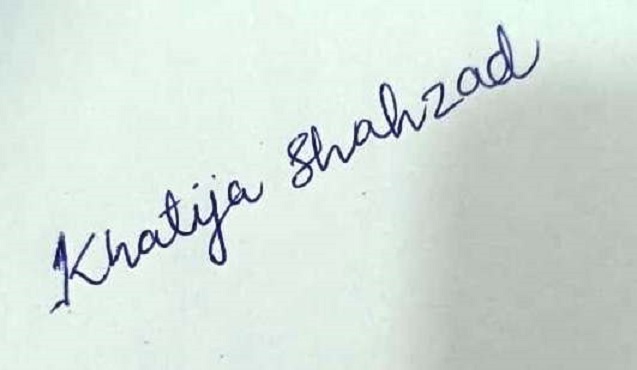 Khatija Shahzad